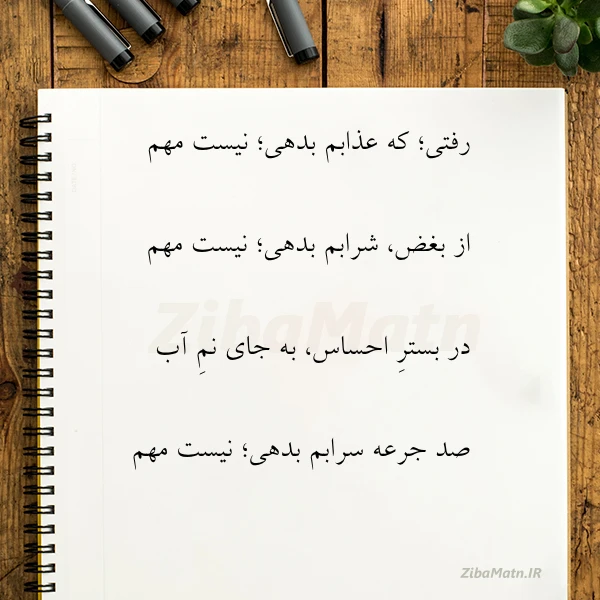 رفتی؛ که عذابم بدهی؛ نیست مهم
از بغض، شرابم بدهی؛ نیست مهم
ZibaMatn
در بسترِ احساس، به جای نمِ آب
صد جرعه سرابم بدهی؛ نیست مهم
ZibaMatn.IR